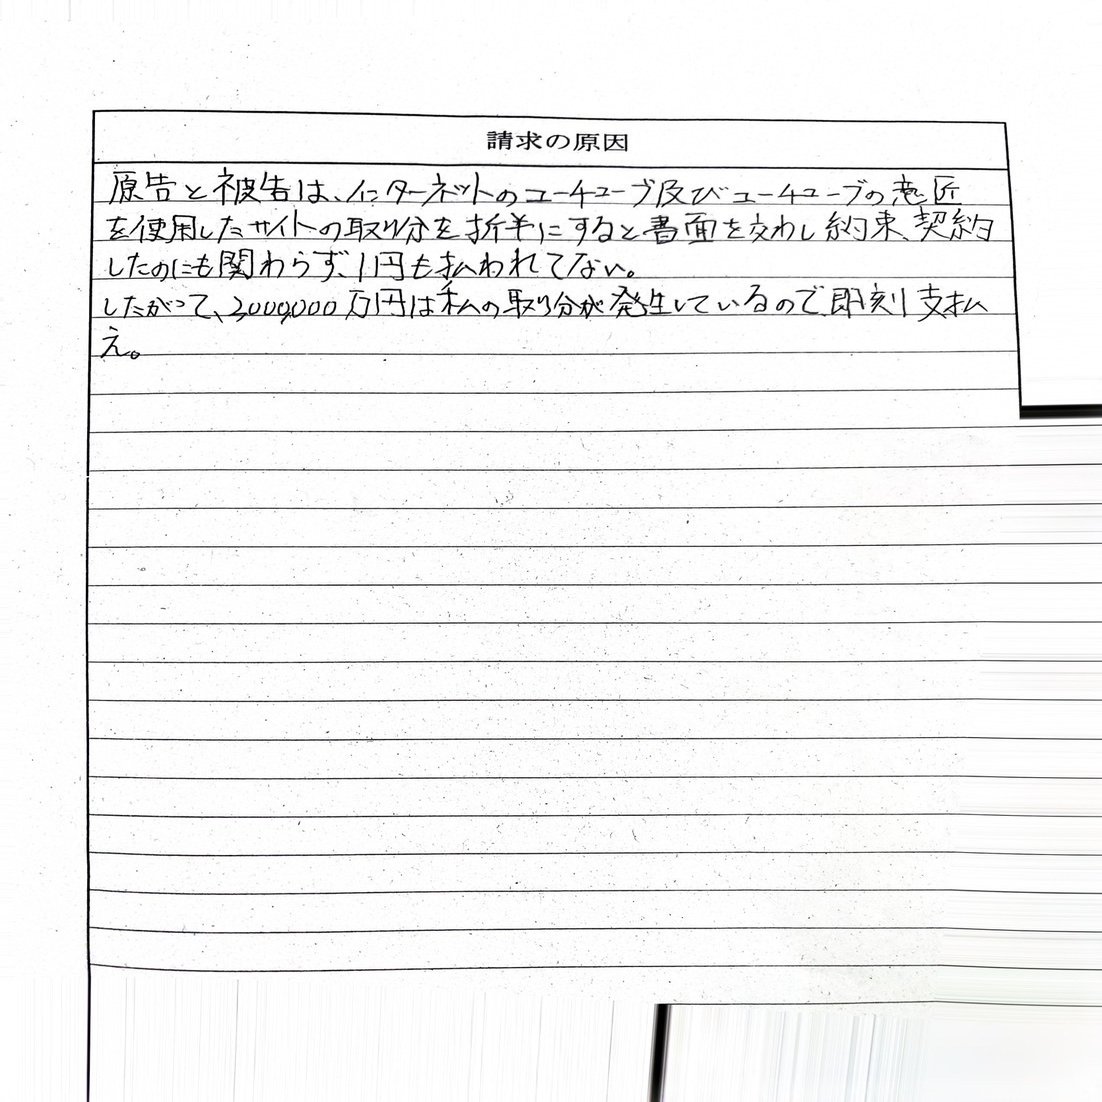 請求の原因
原告と被告は、インターネットのユーチューブ及びユーチューブの意匠
を使用したサイトの取り分を折半にすると書面を交わし約束、契約
したのにも関わらず、1円も払われてない。
したがって、2000,000万円は私の取り分が発生しているので即刻支払
え。